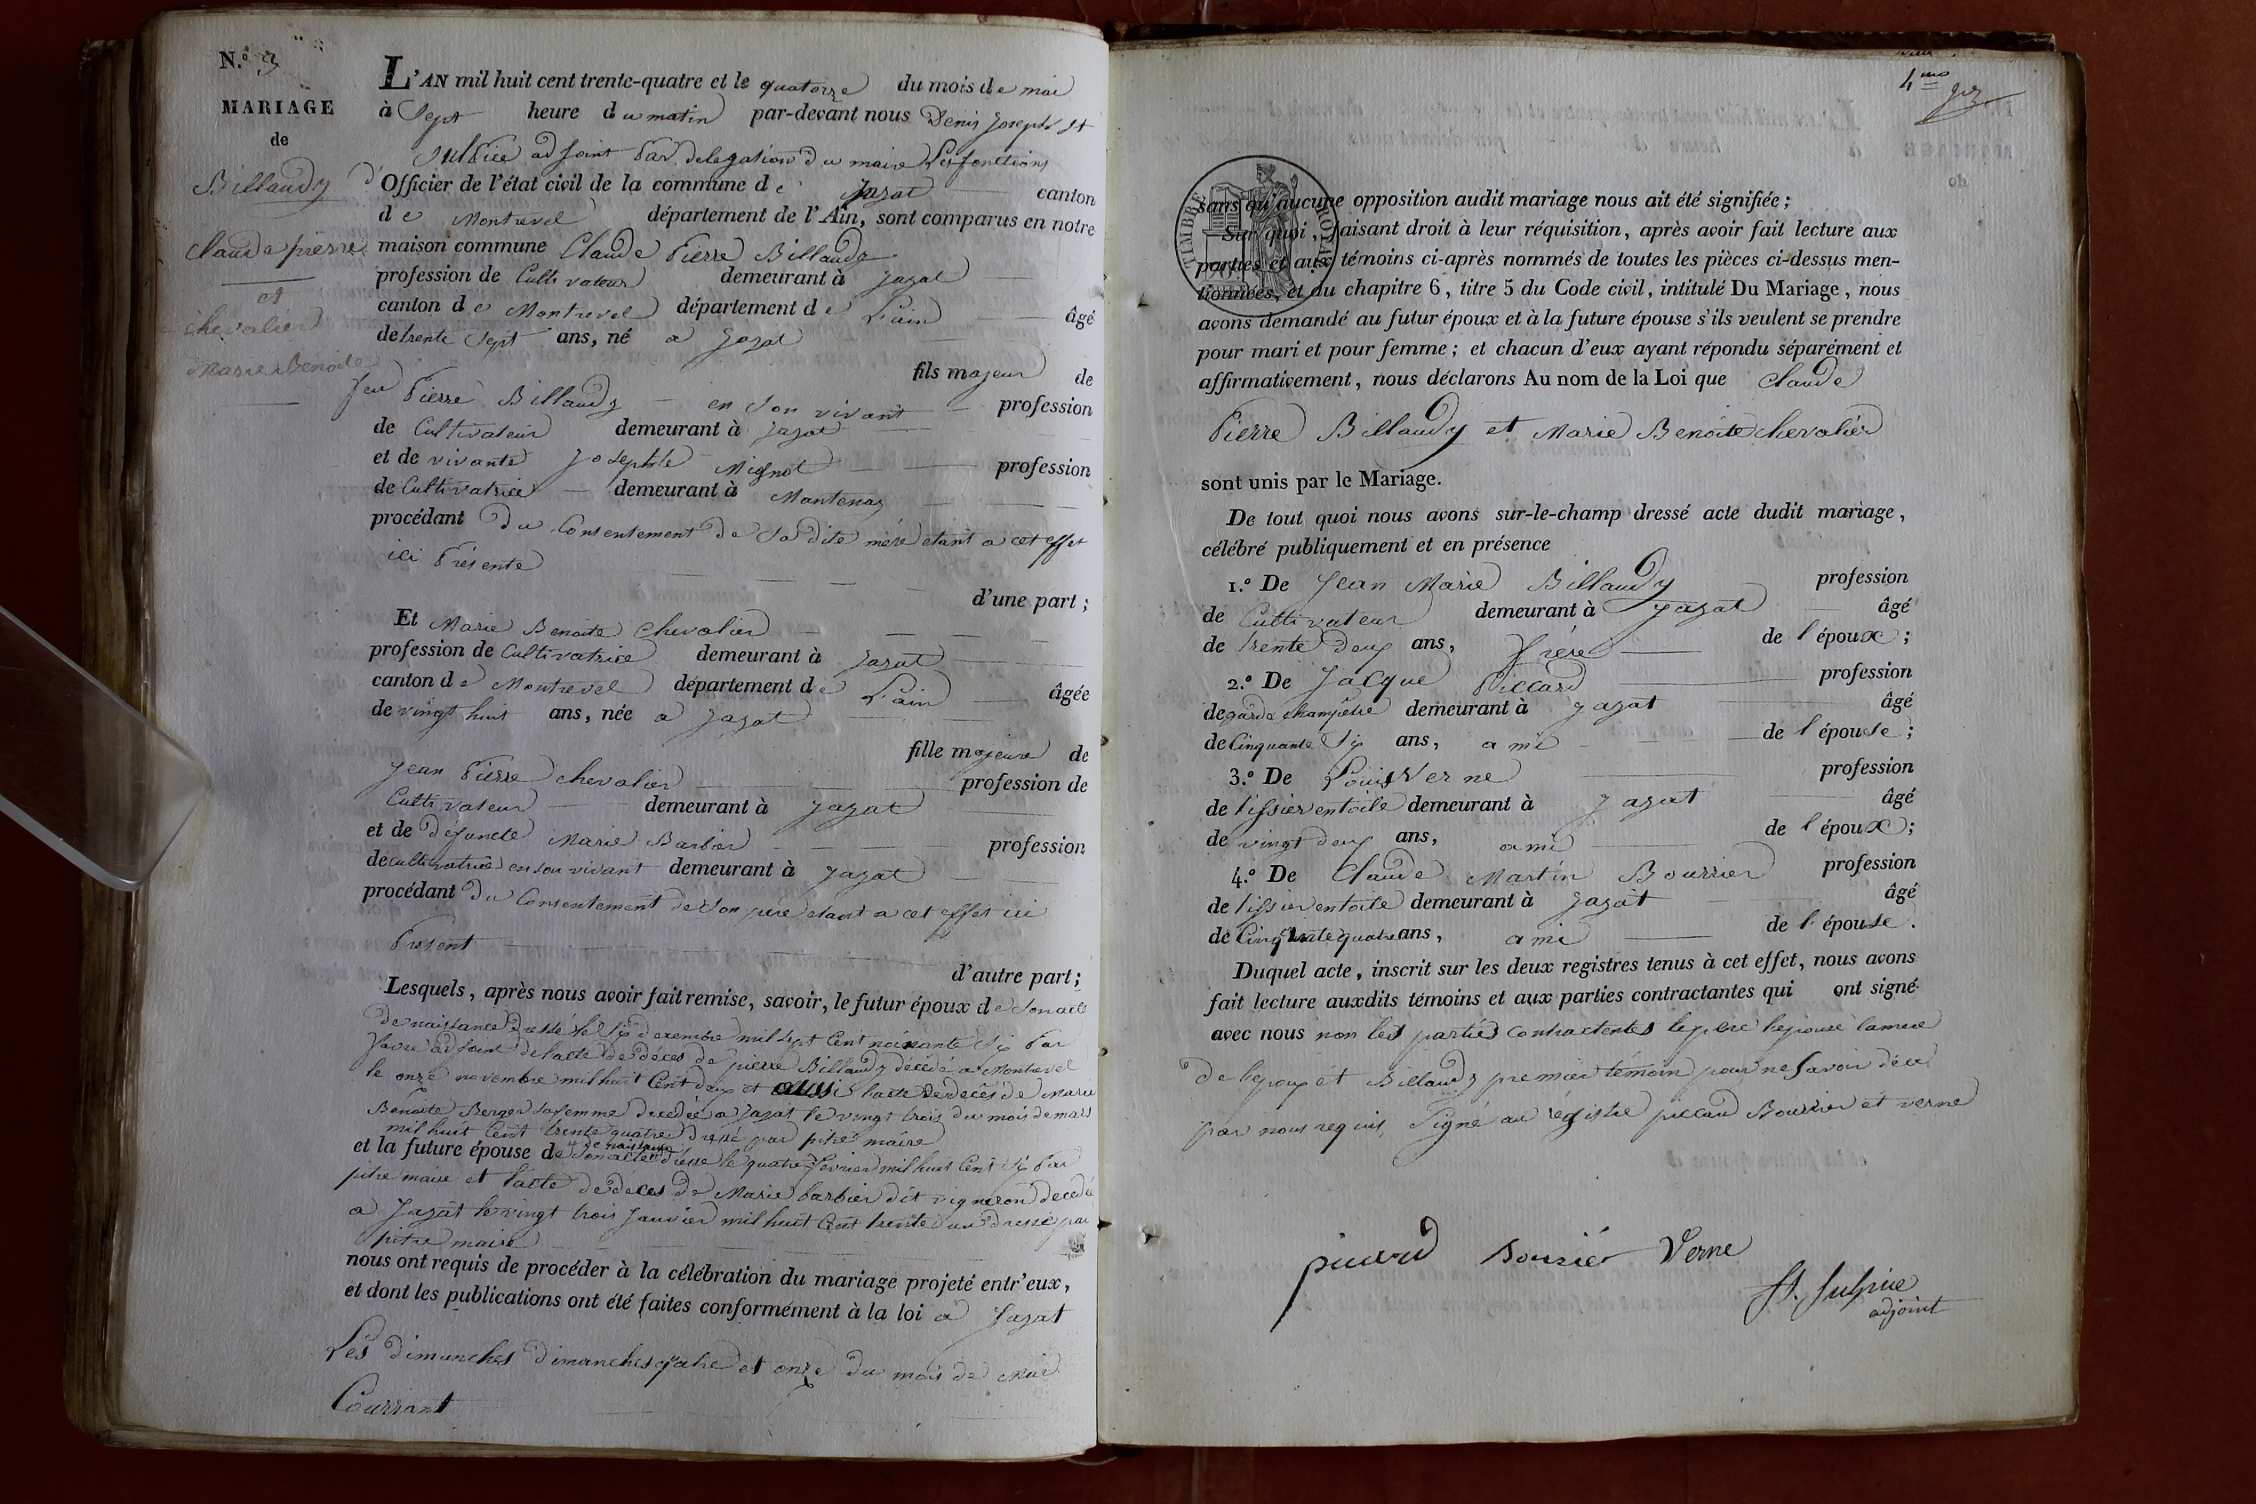 N.º 3
MARIAGE
de
Billaudy
Claude pierre
et
chevalier
Marie Benoite
L'AN mil huit cent trente-quatre et le quatorze du mois de mai
à Sept heure du matin par-devant nous Denis Joseph St
Sulpice adjoint par delegation du maire les fonctions
d'Officier de l'état civil de la commune de Jayat canton
de Montrevel département de l'Ain, sont comparus en notre
maison commune Claude Pierre Billaudy
profession de Cultivateur demeurant à Jayat
canton de Montrevel département de L'ain âgé
de trente Sept ans, né a Jayat
fils majeur de
feu Pierre Billaudy en Son vivant profession
de Cultivateur demeurant à Jayat
et de vivante Josephte Mignot profession
de Cultivatrice demeurant à Mantenay
procédant Du Consentement de Sa dite mére etant a cet effet
ici Présente
d'une part;
Et Marie Benoite Chevalier
profession de Cultivatrice demeurant à Jayat
canton de Montrevel département de L'ain âgée
de vingt huit ans, née a Jayat
fille majeure de
Jean Pierre Chevalier profession de
Cultivateur demeurant à Jayat
et de défuncte Marie Barbier profession
de cultivatrice en son vivant demeurant à Jayat
procédant du Consentement de Son pere etant a cet effet ici
Present
d'autre part;
Lesquels, après nous avoir fait remise, savoir, le futur époux de Son acte
de naissance Dressé le Six decembre mil Sept Cent Par
adjoint de l'acte de déces de pierre Billaudy décédé a Montrevel
le onze novembre mil huit Cent deux et aussi l'acte de décés de Marie
Benoite Berger Sa femme decedée a Jayat le vingt trois du mois de mars
mil huit Cent trente quatre Dressé par pitre maire
et la future épouse de Son acte de naissance Dresse le quatre fevrier mil huit Cent Six Par
pitre maire et l'acte de deces de Marie barbier dit vigneron decedée
a Jayat le vingt trois Janvier mil huit Cent trente un Dressé par
pitre maire
nous ont requis de procéder à la célébration du mariage projeté entr'eux,
et dont les publications ont été faites conformément à la loi a Jayat
Les dimanches dimanches quatre et onze du mois de Mai
Courrant
4me
sans qu'aucune opposition audit mariage nous ait été signifiée;
Sur quoi, faisant droit à leur réquisition, après avoir fait lecture aux
parties et aux témoins ci-après nommés de toutes les pièces ci-dessus men-
tionnées, et du chapitre 6, titre 5 du Code civil, intitulé Du Mariage, nous
avons demandé au futur époux et à la future épouse s'ils veulent se prendre
pour mari et pour femme; et chacun d'eux ayant répondu séparément et
affirmativement, nous déclarons Au nom de la Loi que Claude
Pierre Billaudy et Marie Benoite chevalier
sont unis par le Mariage.
De tout quoi nous avons sur-le-champ dressé acte dudit mariage,
célébré publiquement et en présence
1.º De Jean Marie Billaudy profession
de Cultivateur demeurant à Jayat âgé
de trente deux ans, frére de l'époux;
2.º De Jacque Piccard profession
de garde champetre demeurant à Jayat âgé
de Cinquante Six ans, ami de l'épouse;
3.º De Louis Verne profession
de tissier en toile demeurant à Jayat âgé
de vingt deux ans, ami de l'époux;
4.º De Claude Martin Bourrier profession
de tissier en toile demeurant à Jayat âgé
de Cinquante quatre ans, ami de l'épouse.
Duquel acte, inscrit sur les deux registres tenus à cet effet, nous avons
fait lecture auxdits témoins et aux parties contractantes qui ont signé
avec nous non les parties contractentes le pere l'epouse la mere
de l'epoux et Billaudy premier témoin pour ne Savoir de ce
par nous requis, Signé au régistre picard Bourrier et verne
TIMBRE ROYAL
picard Bourier Verne
St. Sulpice
adjoint